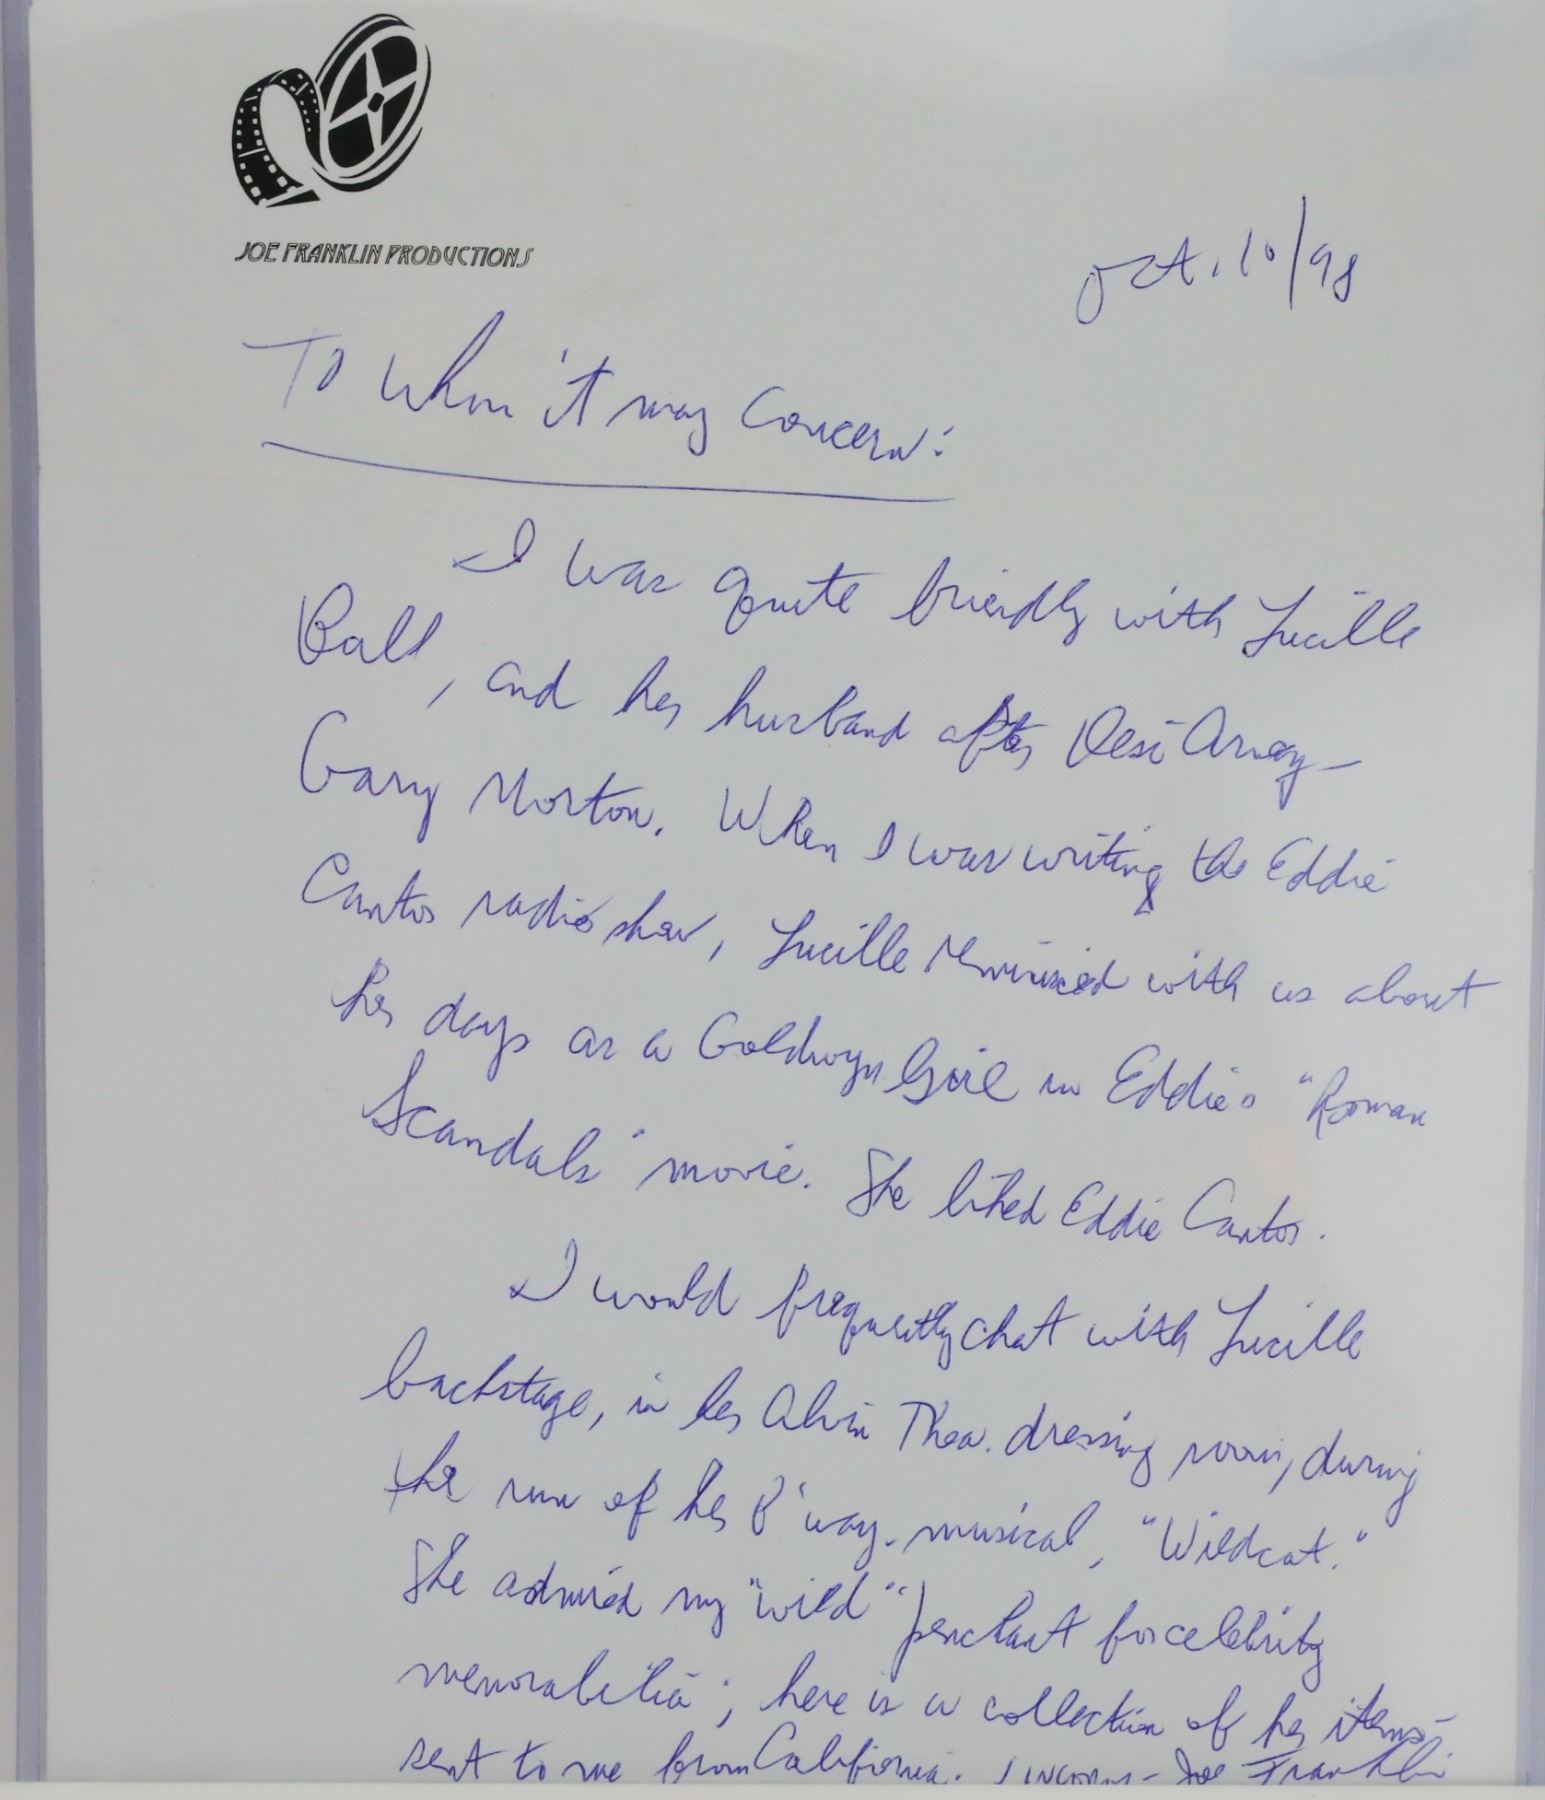 JOE FRANKLIN PRODUCTIONS
Oct. 10/98
To Whom it may Concern:
I was quite friendly with Lucille
Ball, and her husband after Desi Arnay-
Gary Morton. When I was writing the Eddie
Cantor radio show, Lucille reminisced with us about
her days as a Goldwyn Girl in Eddie's "Roman
Scandals" movie. She liked Eddie Cantor.
I would frequently chat with Lucille
backstage, in her Alvin Thea. dressing room, during
the run of her B'way. musical, "Wildcat."
She admired my "wild" penchant for celebrity
memorabilia; here is a collection of her items-
sent to me from California. Sincerely- Joe Franklin